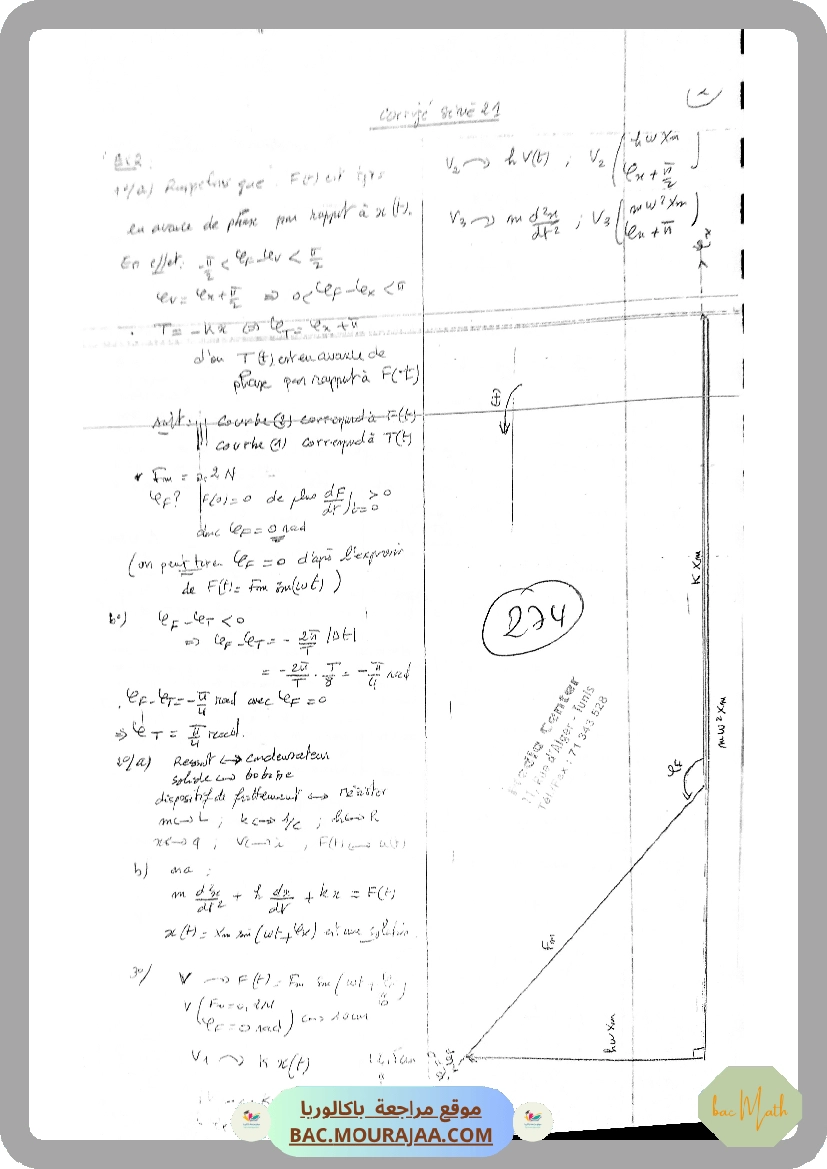 Corrigé série 21
Ex 2
1°/a) Rappelons que F(t) est tjrs
en avance de phase par rapport à x(t).
En effet: -π/2 < φF-φv < π/2
φv = φx + π/2 ⇒ 0 < φF - φx < π
. T = -Kx ⇔ φT = φx + π
d'où T(t) est en avance de
phase par rapport à F(t)
suit: courbe (2) correspond à F(t)
courbe (1) correspond à T(t)
* Fm = 0,2 N
φF? F(0) = 0 de plus dF/dt)t=0 > 0
donc φF = 0 rad
(on peut tirer φF = 0 d'après l'expression
de F(t) = Fm sin(wt))
b°) φF - φT < 0
⇒ φF - φT = - 2π/T |Δt|
= - 2π/T . T/8 = - π/4 rad
. φF - φT = - π/4 rad avec φF = 0
⇒ φT = π/4 rad.
2°/a) Ressort ↔ condensateur
solide ↔ bobine
dispositif de frottement ↔ résistor
m ↔ L ; k ↔ 1/c ; h ↔ R
x ↔ q ; v ↔ i ; F(t) ↔ u(t)
b) on a :
m d²x/dt² + h dx/dt + kx = F(t)
x(t) = Xm sin(wt + φx) est une solution
3°/ V → F(t) = Fm sin(wt +
V (Fm = 0,2N
φF = 0 rad) ↔ 10 cm
V1 → k x(t)
V2 → h V(t) ; V2 (hwXm
φx + π/2)
V3 → m d²x/dt² ; V3 (mw²Xm
φx + π)
φx
(+)
K Xm
274
Media Center
11, rue d'Alger - Tunis
Tél / Fax : 71 343 528
mw²Xm
φF
Fm
hwXm
موقع مراجعة باكالوريا
BAC.MOURAJAA.COM
bac Math